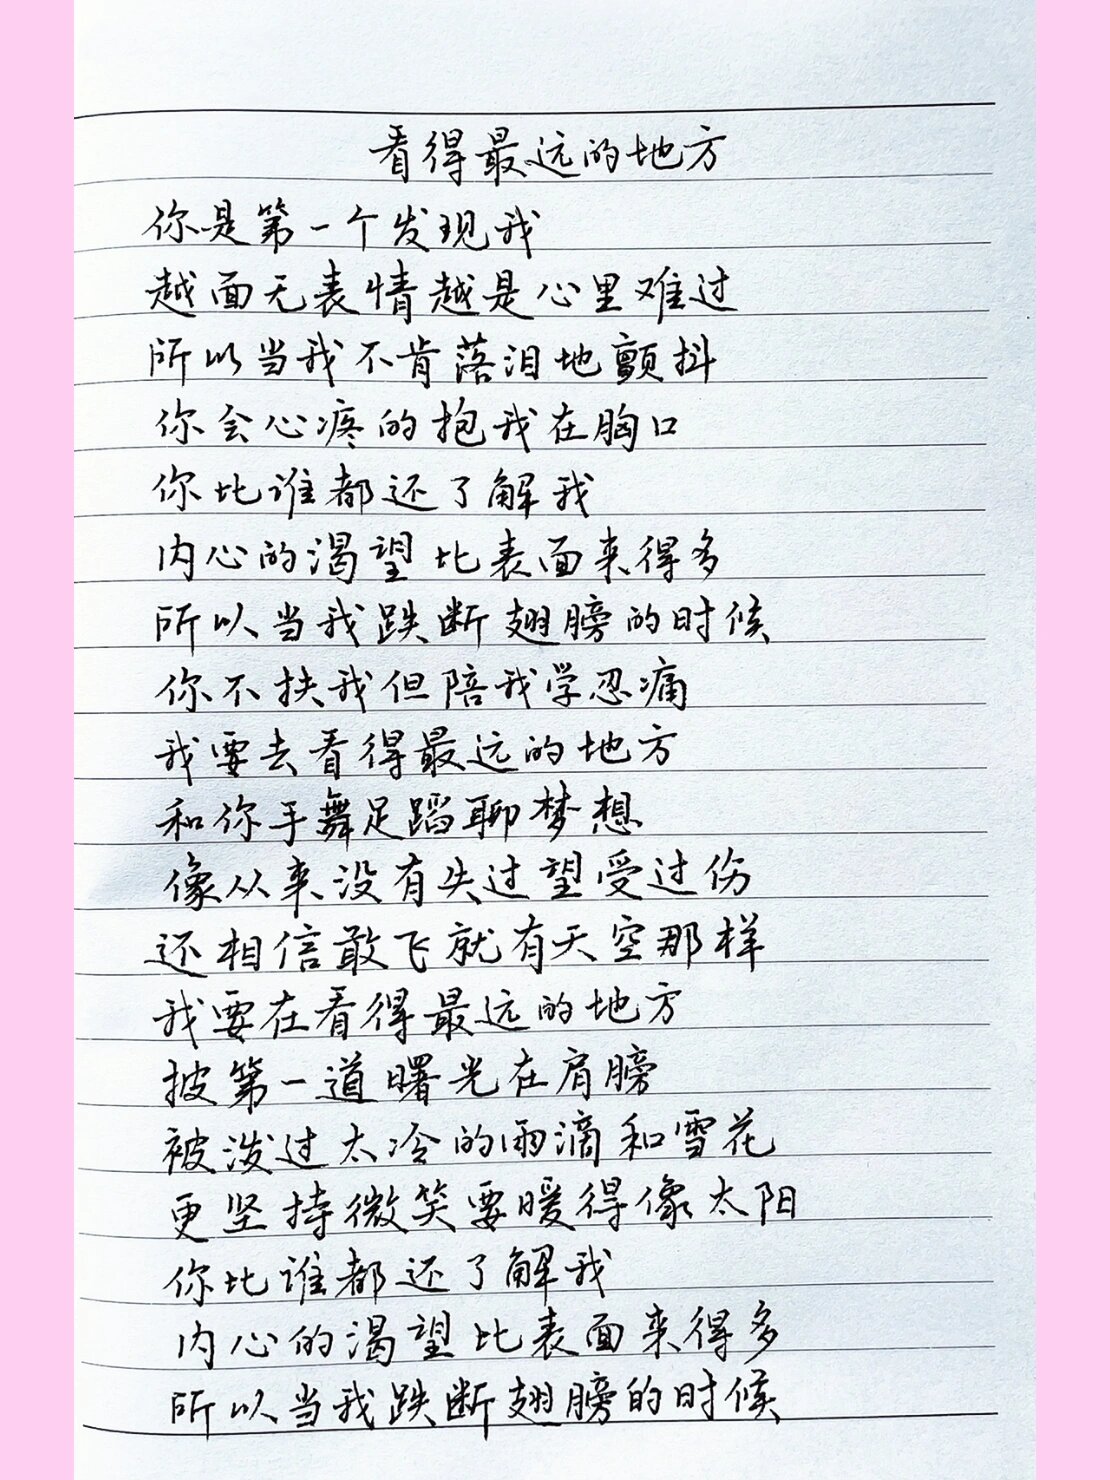 看得最远的地方
你是第一个发现我
越面无表情越是心里难过
所以当我不肯落泪地颤抖
你会心疼的抱我在胸口
你比谁都还了解我
内心的渴望比表面来得多
所以当我跌断翅膀的时候
你不扶我但陪我学忍痛
我要去看得最远的地方
和你手舞足蹈聊梦想
像从来没有失过望受过伤
还相信敢飞就有天空那样
我要在看得最远的地方
披第一道曙光在肩膀
被泼过太冷的雨滴和雪花
更坚持微笑要暖得像太阳
你比谁都还了解我
内心的渴望比表面来得多
所以当我跌断翅膀的时候